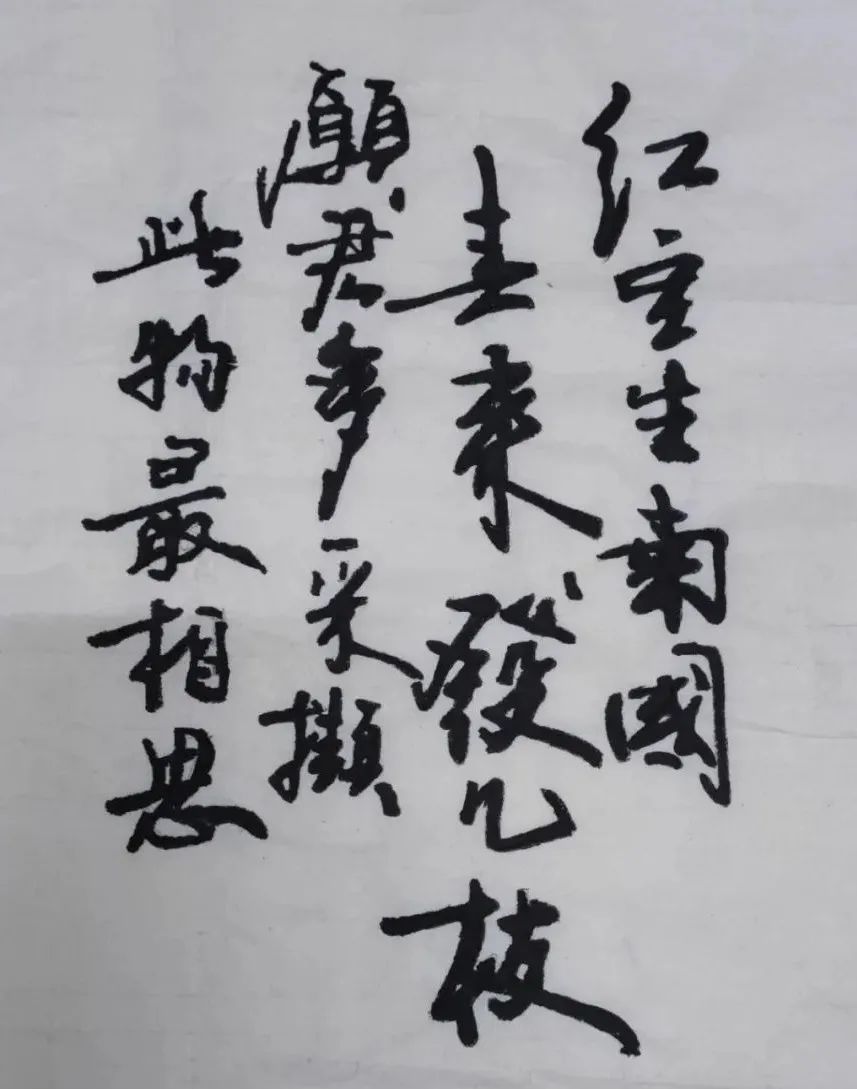 红豆生南國
春来發几枝
願君多采擷
此物最相思